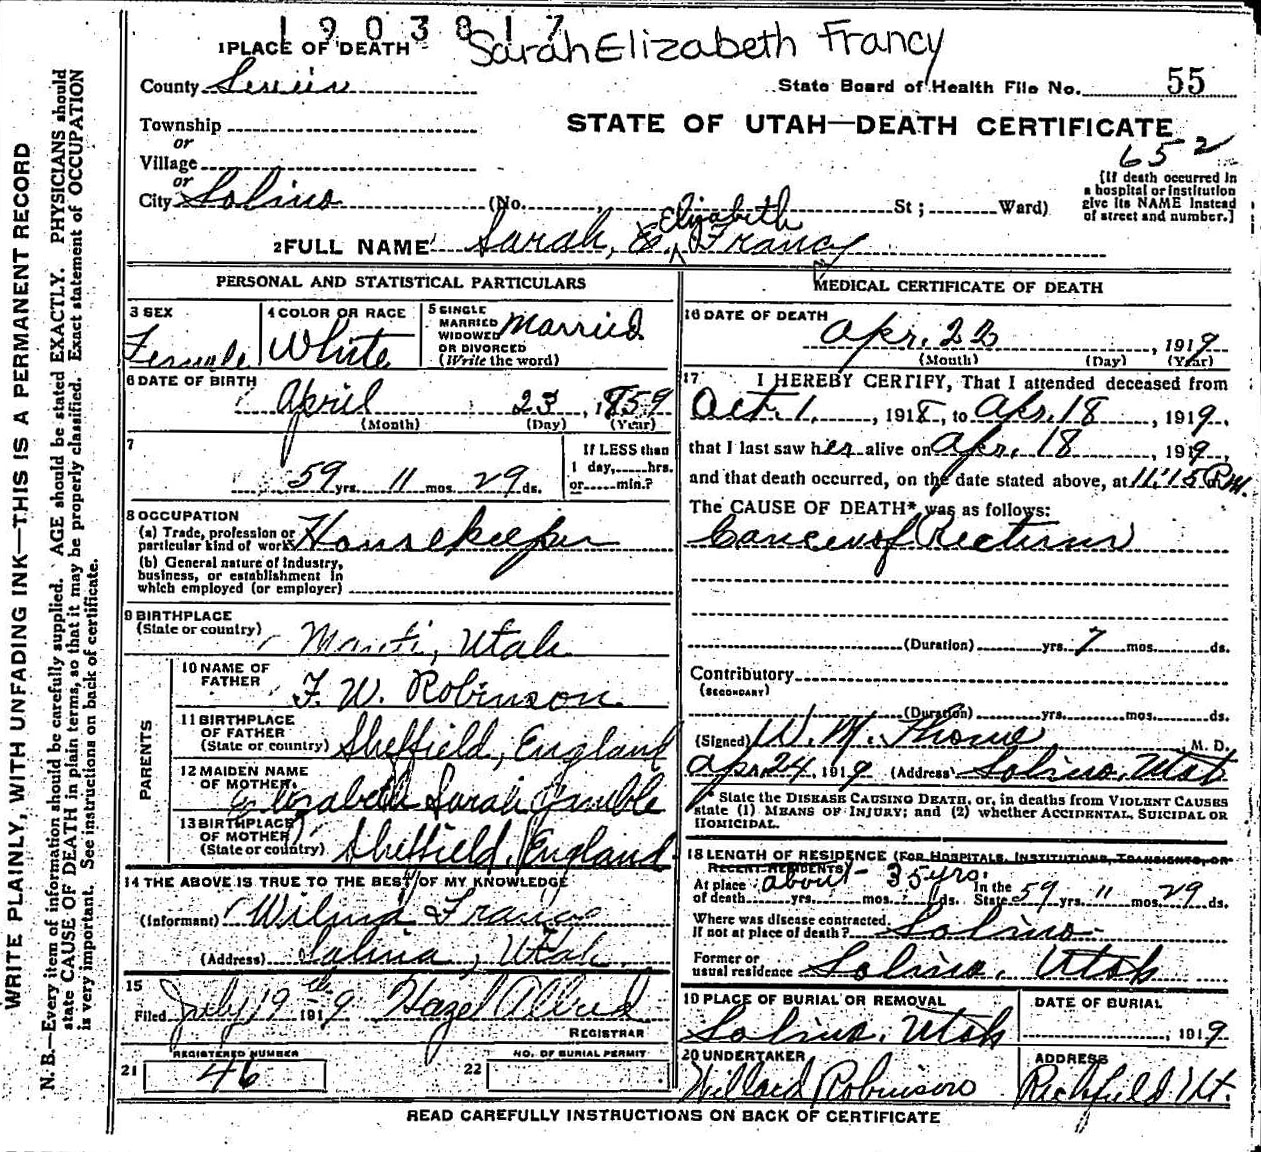 1903817
1 PLACE OF DEATH Sarah Elizabeth Francy
County Sevier State Board of Health File No. 55
Township
STATE OF UTAH—DEATH CERTIFICATE
or
652
Village
or
City Salina (No. St; Ward)
[If death occurred in a hospital or institution give its NAME instead of street and number.]
Elizabeth
2 FULL NAME Sarah, E. Francy
PERSONAL AND STATISTICAL PARTICULARS
3 SEX
Female
4 COLOR OR RACE
White
5 SINGLE MARRIED WIDOWED OR DIVORCED (Write the word)
Married
6 DATE OF BIRTH
April 23, 1859
(Month) (Day) (Year)
7
59 yrs. 11 mos. 29 ds.
If LESS than 1 day, hrs. or min.?
8 OCCUPATION
(a) Trade, profession or particular kind of work Housekeeper
(b) General nature of industry, business, or establishment in which employed (or employer)
9 BIRTHPLACE
(State or country) Manti, Utah
PARENTS
10 NAME OF FATHER F. W. Robinson
11 BIRTHPLACE OF FATHER (State or country) Sheffield, England
12 MAIDEN NAME OF MOTHER Elizabeth Sarah
13 BIRTHPLACE OF MOTHER (State or country) Sheffield, England
14 THE ABOVE IS TRUE TO THE BEST OF MY KNOWLEDGE
(Informant) Wilma Francy
(Address) Salina, Utah
15
Filed July 19th 1919 Hazel Allred
REGISTRAR
REGISTERED NUMBER
21 46
NO. OF BURIAL PERMIT
22
MEDICAL CERTIFICATE OF DEATH
16 DATE OF DEATH
Apr. 23, 1919
(Month) (Day) (Year)
17 I HEREBY CERTIFY, That I attended deceased from
Oct. 1, 1918, to Apr. 18, 1919,
that I last saw her alive on Apr. 18, 1919,
and that death occurred, on the date stated above, at 11:15 P.M.
The CAUSE OF DEATH* was as follows:
Cancer of Rectum
(Duration) yrs. 7 mos. ds.
Contributory
(SECONDARY)
(Duration) yrs. mos. ds.
(Signed) W. M. M. D.
Apr. 24, 1919 (Address) Salina, Utah
* State the DISEASE CAUSING DEATH, or, in deaths from VIOLENT CAUSES
state (1) MEANS OF INJURY; and (2) whether ACCIDENTAL, SUICIDAL OR
HOMICIDAL.
18 LENGTH OF RESIDENCE (FOR HOSPITALS, INSTITUTIONS, TRANSIENTS, OR
RECENT RESIDENTS)
At place of death about 35 yrs. mos. ds. In the State 59 yrs. 11 mos. 29 ds.
Where was disease contracted, If not at place of death? Salina
Former or usual residence Salina, Utah
19 PLACE OF BURIAL OR REMOVAL
Salina, Utah
DATE OF BURIAL
, 1919
20 UNDERTAKER
Willard Robinson
ADDRESS
Richfield Ut.
READ CAREFULLY INSTRUCTIONS ON BACK OF CERTIFICATE
WRITE PLAINLY, WITH UNFADING INK—THIS IS A PERMANENT RECORD
N. B.—Every item of information should be carefully supplied. AGE should be stated EXACTLY. PHYSICIANS should
state CAUSE OF DEATH in plain terms, so that it may be properly classified. Exact statement of OCCUPATION
is very important. See instructions on back of certificate.